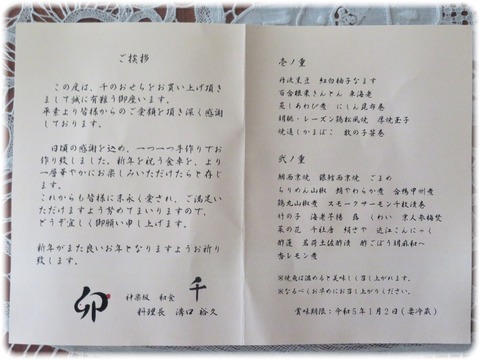 ご挨拶
この度は、千のおせちをお買い上げ頂き
まして誠に有難う御座います。
平素より皆様からのご愛顧を頂き深く感謝
しております。
日頃の感謝を込め、一つ一つ手作りでお
作り致しました。新年を祝う食卓を、より
一層華やかにお楽しみいただけたらと存じ
ます。
これからも皆様に末永く愛され、ご満足い
ただけますよう努めてまいりますので、
どうぞ宜しく御願い申し上げます。
新年がまた良いお年となりますようお祈り
致します。
卯
神楽坂 和食 千
料理長 溝口 裕久
壱ノ重
丹波黒豆 紅白柚子なます
百合根栗きんとん 車海老
煮しあわび煮 にしん昆布巻
胡桃・レーズン鶏松風焼 厚焼玉子
焼通しかまぼこ 数の子笹巻
弐ノ重
鯛西京焼 銀鱈西京焼 ごまめ
ちりめん山椒 蛸やわらか煮 合鴨甲州煮
鶏丸山椒煮 スモークサーモン千枚漬巻
竹の子 海老芋 蕗 くわい 京人参梅煮
菜の花 干社唐 絹さや 近江こんにゃく
酢蓮 茗荷土佐酢漬 酢ごぼう胡麻和へ
杏レモン煮
※焼魚は温めると美味しく召し上がれます。
※なるべくお早めにお召し上がりください。
賞味期限:令和5年1月2日(要冷蔵)